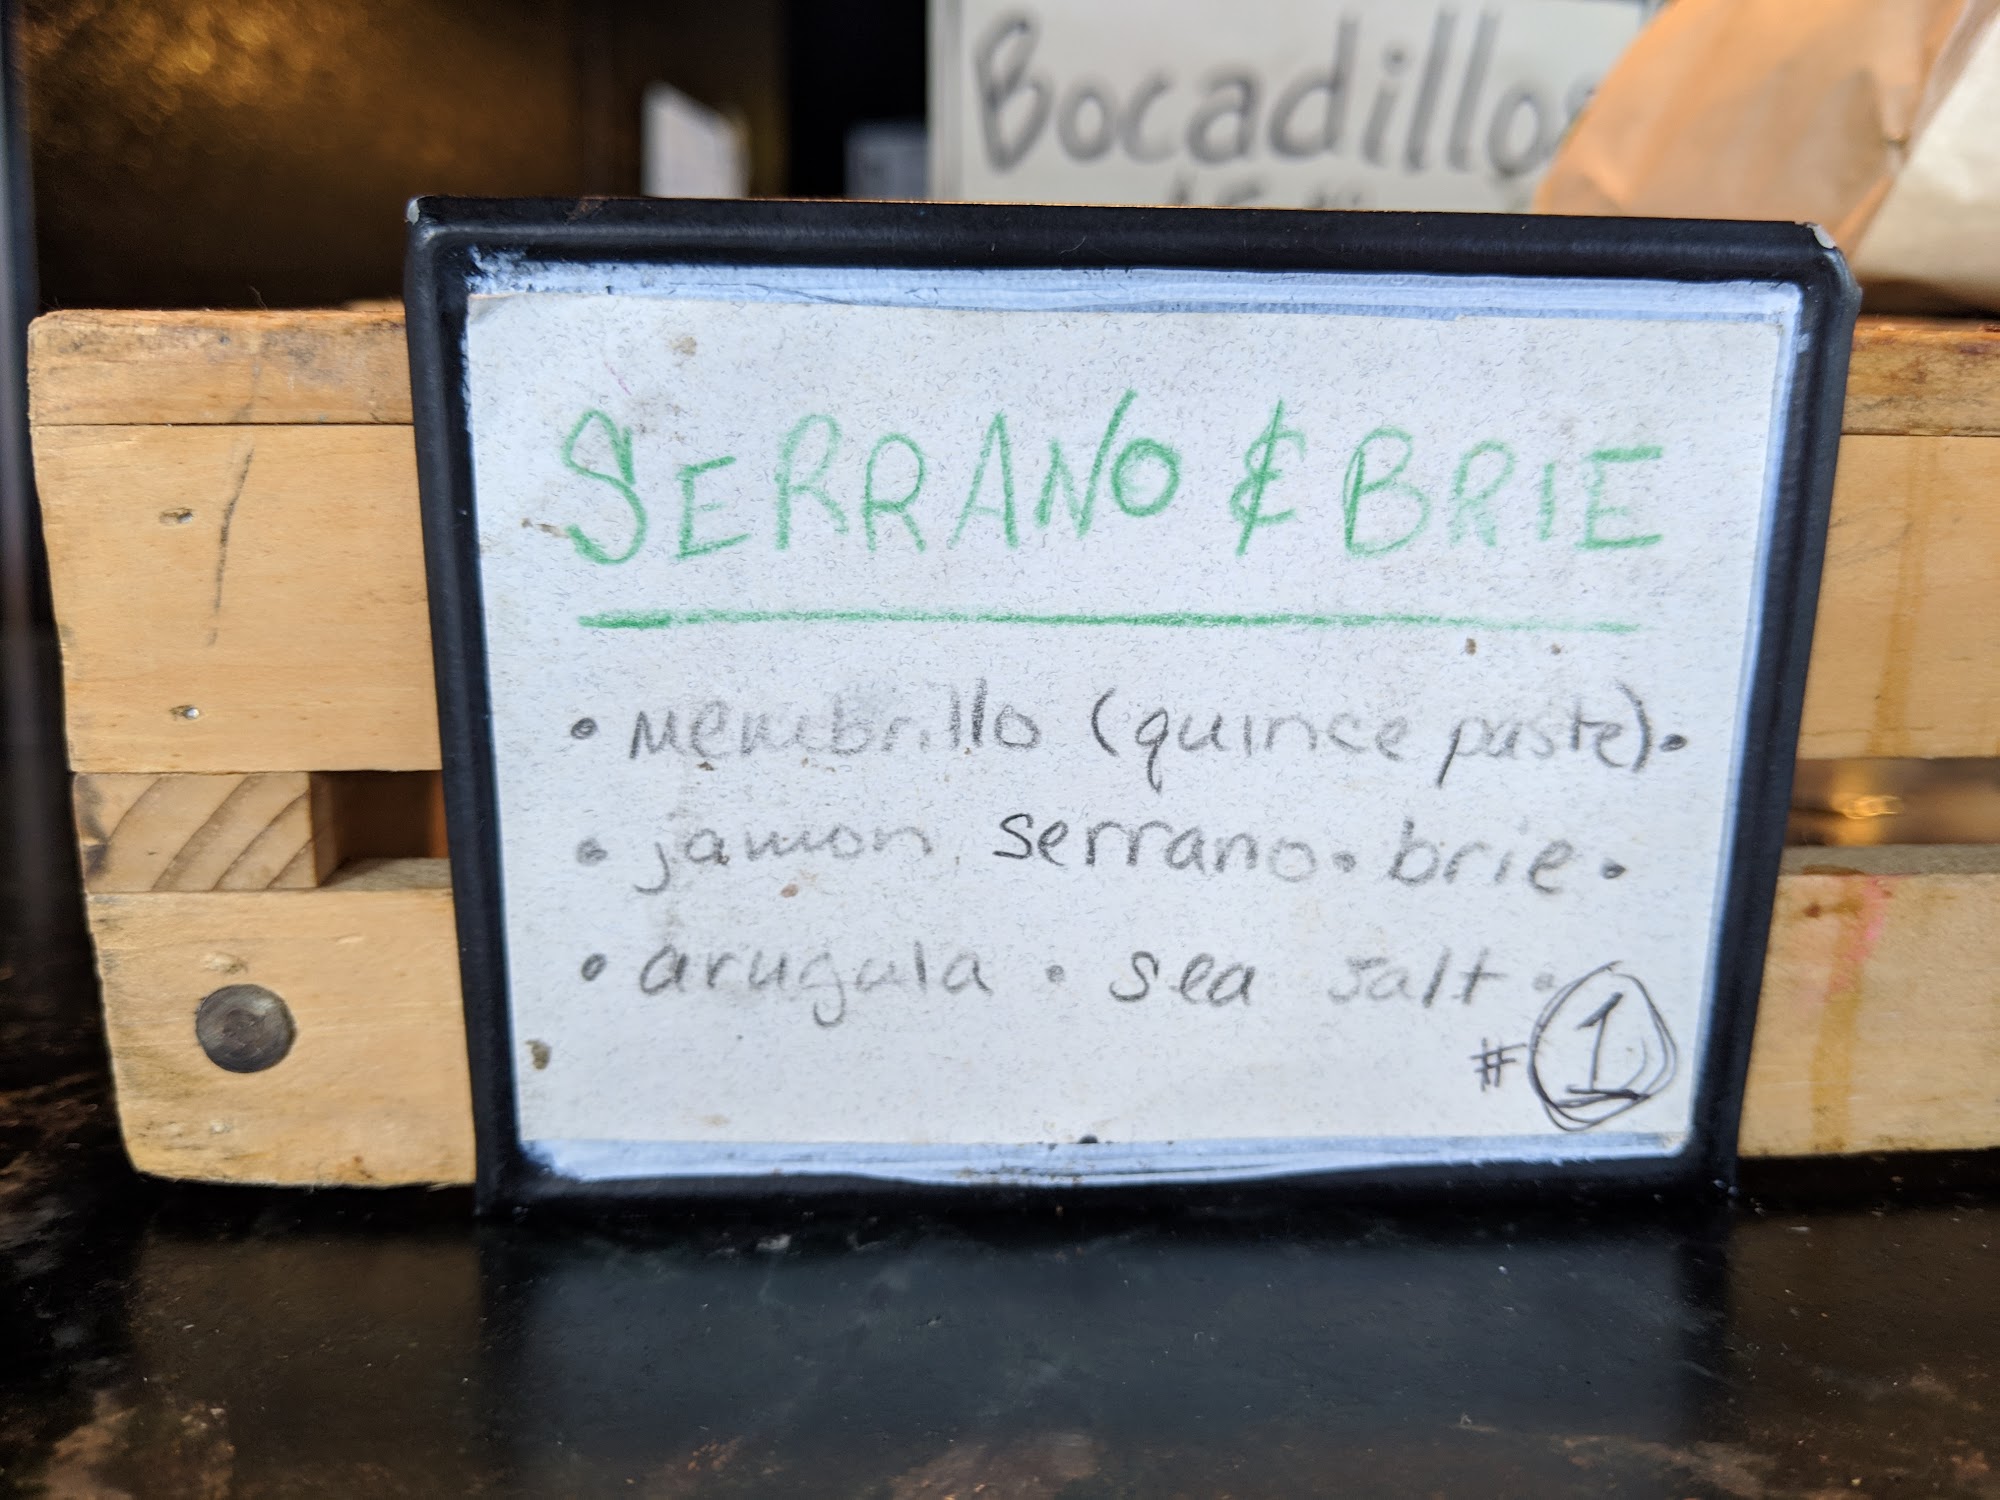 Bocadillos
SERRANO & BRIE
• Membrillo (quince paste) •
• jamon serrano • brie •
• arugula • sea salt •
# 1